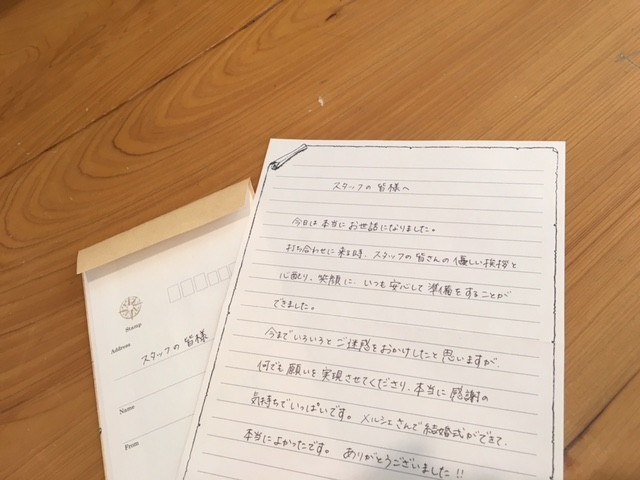 スタッフの皆様へ
今日は本当にお世話になりました。
打ち合わせに来る時、スタッフの皆さんの優しい挨拶と
心配り、笑顔に、いつも安心して準備をすることが
できました。
今までいろいろとご迷惑をおかけしたと思いますが、
何でも願いを実現させてくださり、本当に感謝の
気持ちでいっぱいです。メルシェさんで結婚式ができて、
本当によかったです。ありがとうございました!!
Stamp
Address
スタッフの皆様
Name
From